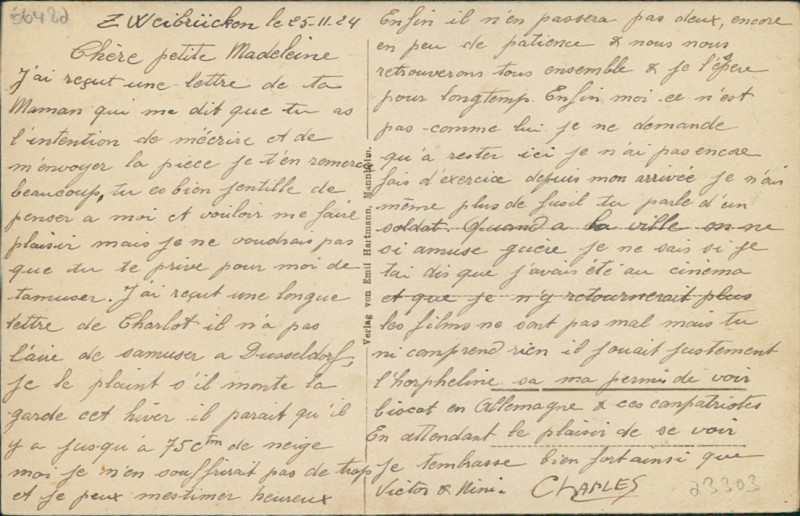 56420
Zweibrücken le 25-11.24
Chère petite Madeleine
J'ai reçut une lettre de ta
Maman qui me dit que tu as
l'intention de mécrire et de
m'envoyer la pièce je t'en remerci
beaucoup, tu es bien jentille de
penser a moi et vouloir me faire
plaisir mais je ne voudrais pas
que tu te prive pour moi de
tamuser. J'ai reçut une longue
lettre de Charlot il n'a pas
l'air de samuser a Dusseldorf,
je le plaint s'il monte la
garde cet hiver il parait qu'il
y a jusqu'à 75cm de neige
moi je n'en souffrirait pas de trop
et je peux mestimer heureux
Verlag von Emil Hartmann, Mannheim.
Enfin il n'en passera pas deux, encore
en peu de patience & nous nous
retrouverons tous ensemble & je l'éspère
pour longtemp. Enfin moi ce n'est
pas comme lui je ne demande
qu'à rester ici je n'ai pas encore
fais d'exercice depuis mon arrivée je n'ais
même plus de fusil tu parle d'un
soldat. Quand a la ville on ne
si amuse guère je ne sais si je
t'ai dis que j'avais été au cinema
et que je n'y retournerait plus
les films ne sont pas mal mais tu
ni comprend rien il jouait justement
l'horpheline sa ma permis de voir
biscot en Allemagne & ces conpatriotes
En attendant le plaisir de se voir
je tembrasse bien fort ainsi que
Victor & Nini.
CHARLES
23303